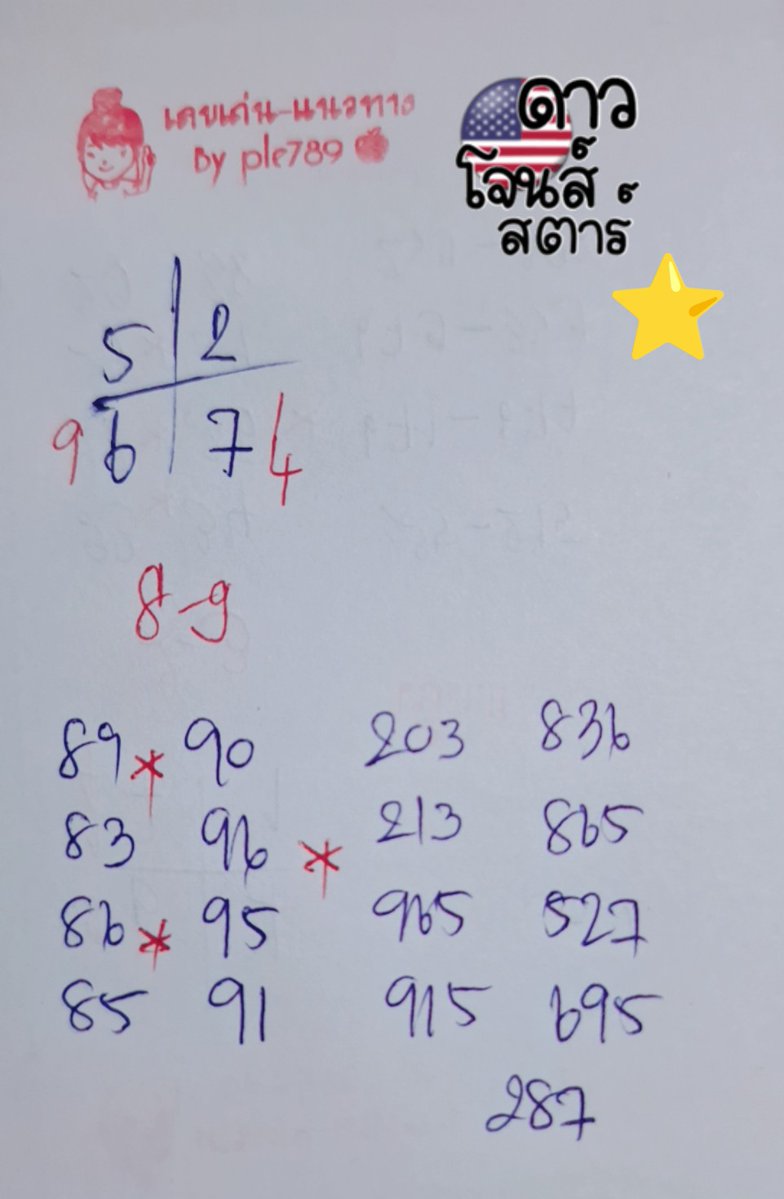 เลขเด่น-แนวทาง
By ple789
ดาว
โจนส์
สตาร์
5 2
9 6 7 4
8-9
89 * 90 203 836
83 96 * 213 865
86 * 95 965 527
85 91 915 695
287